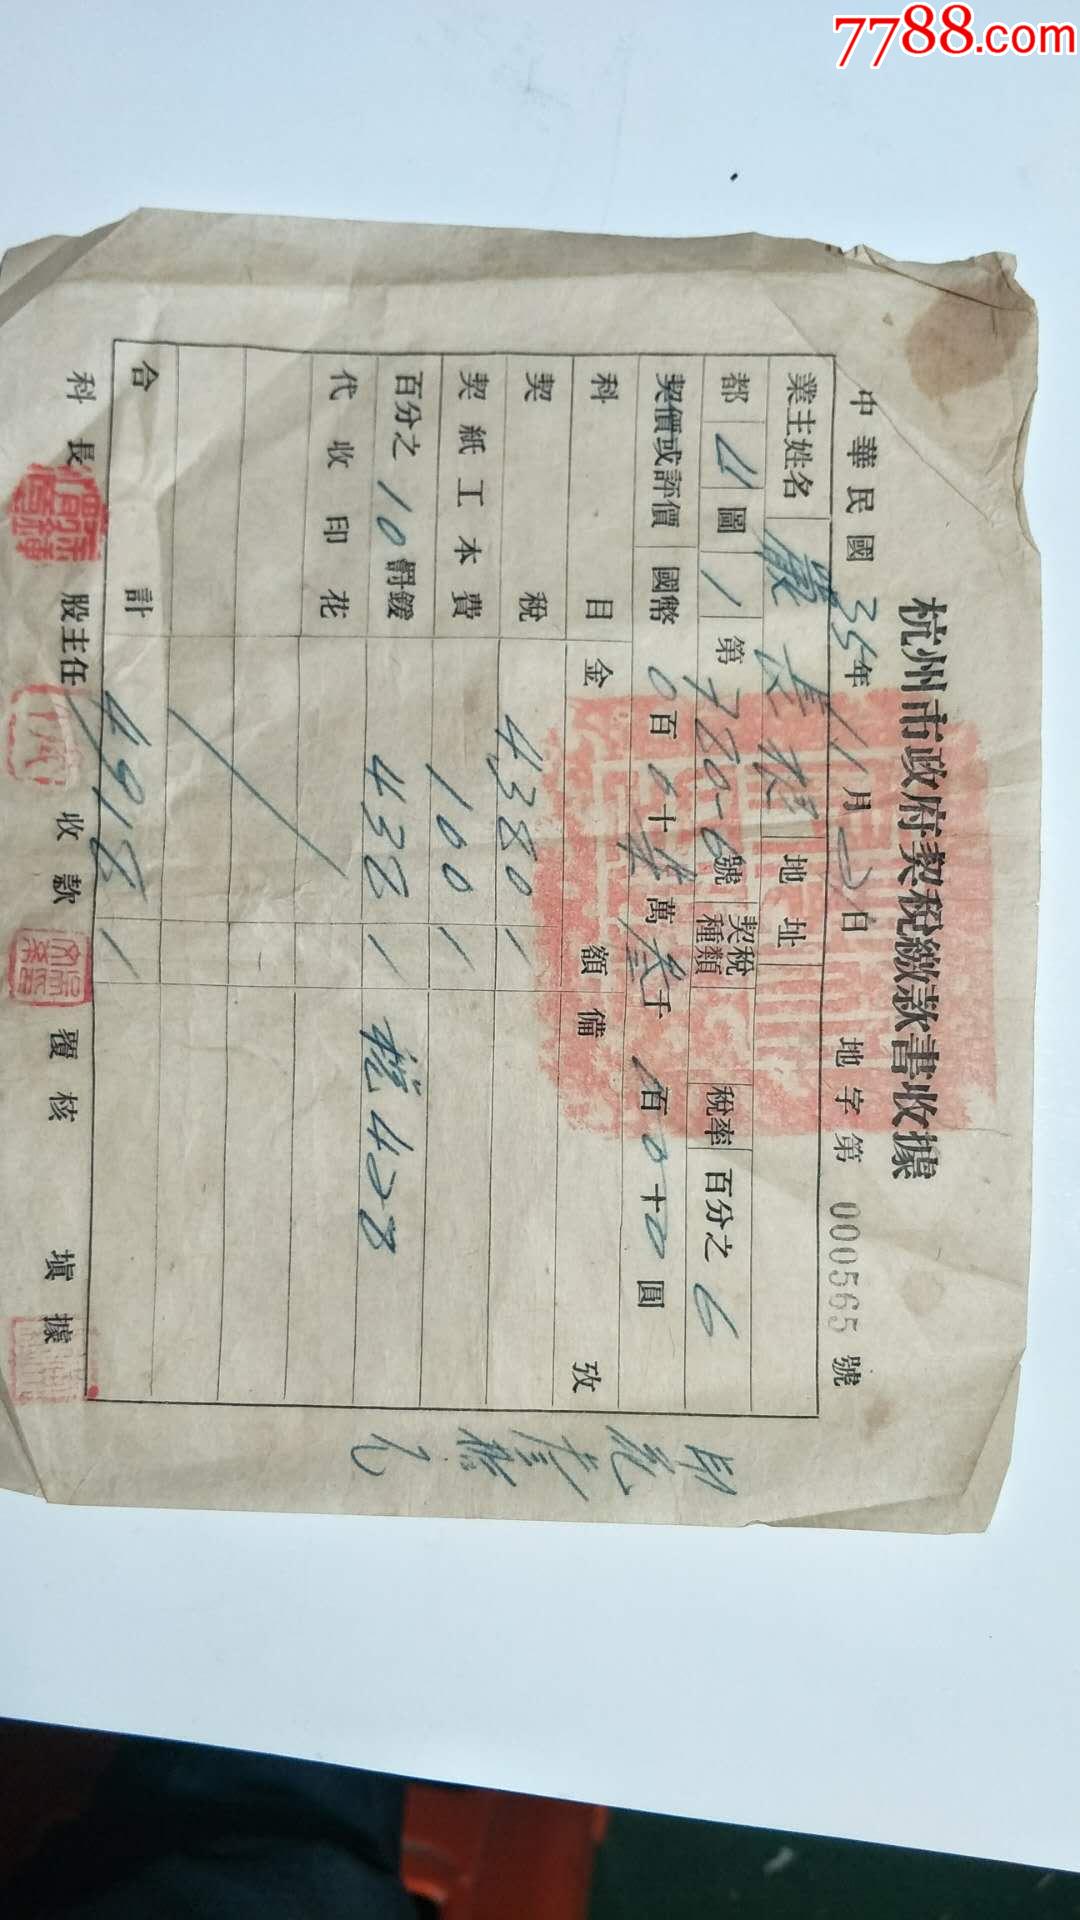 7788.com
杭州市政府契稅繳款書收據
中華民國35年11月2日 地字第 000565 號
業主姓名 嚴長 地址
都 山 圖 1 第 780-6 號 契稅種類 稅率 百分之 6
契價或評價 國幣 0百0十柒萬叁千 百0十0圓
科目 金額 備攷
契稅 4380
契紙工本費 100
百分之10罸鍰 438 428
代收印花
合計 4918
科長 股主任 收款 覆核 填據
印花